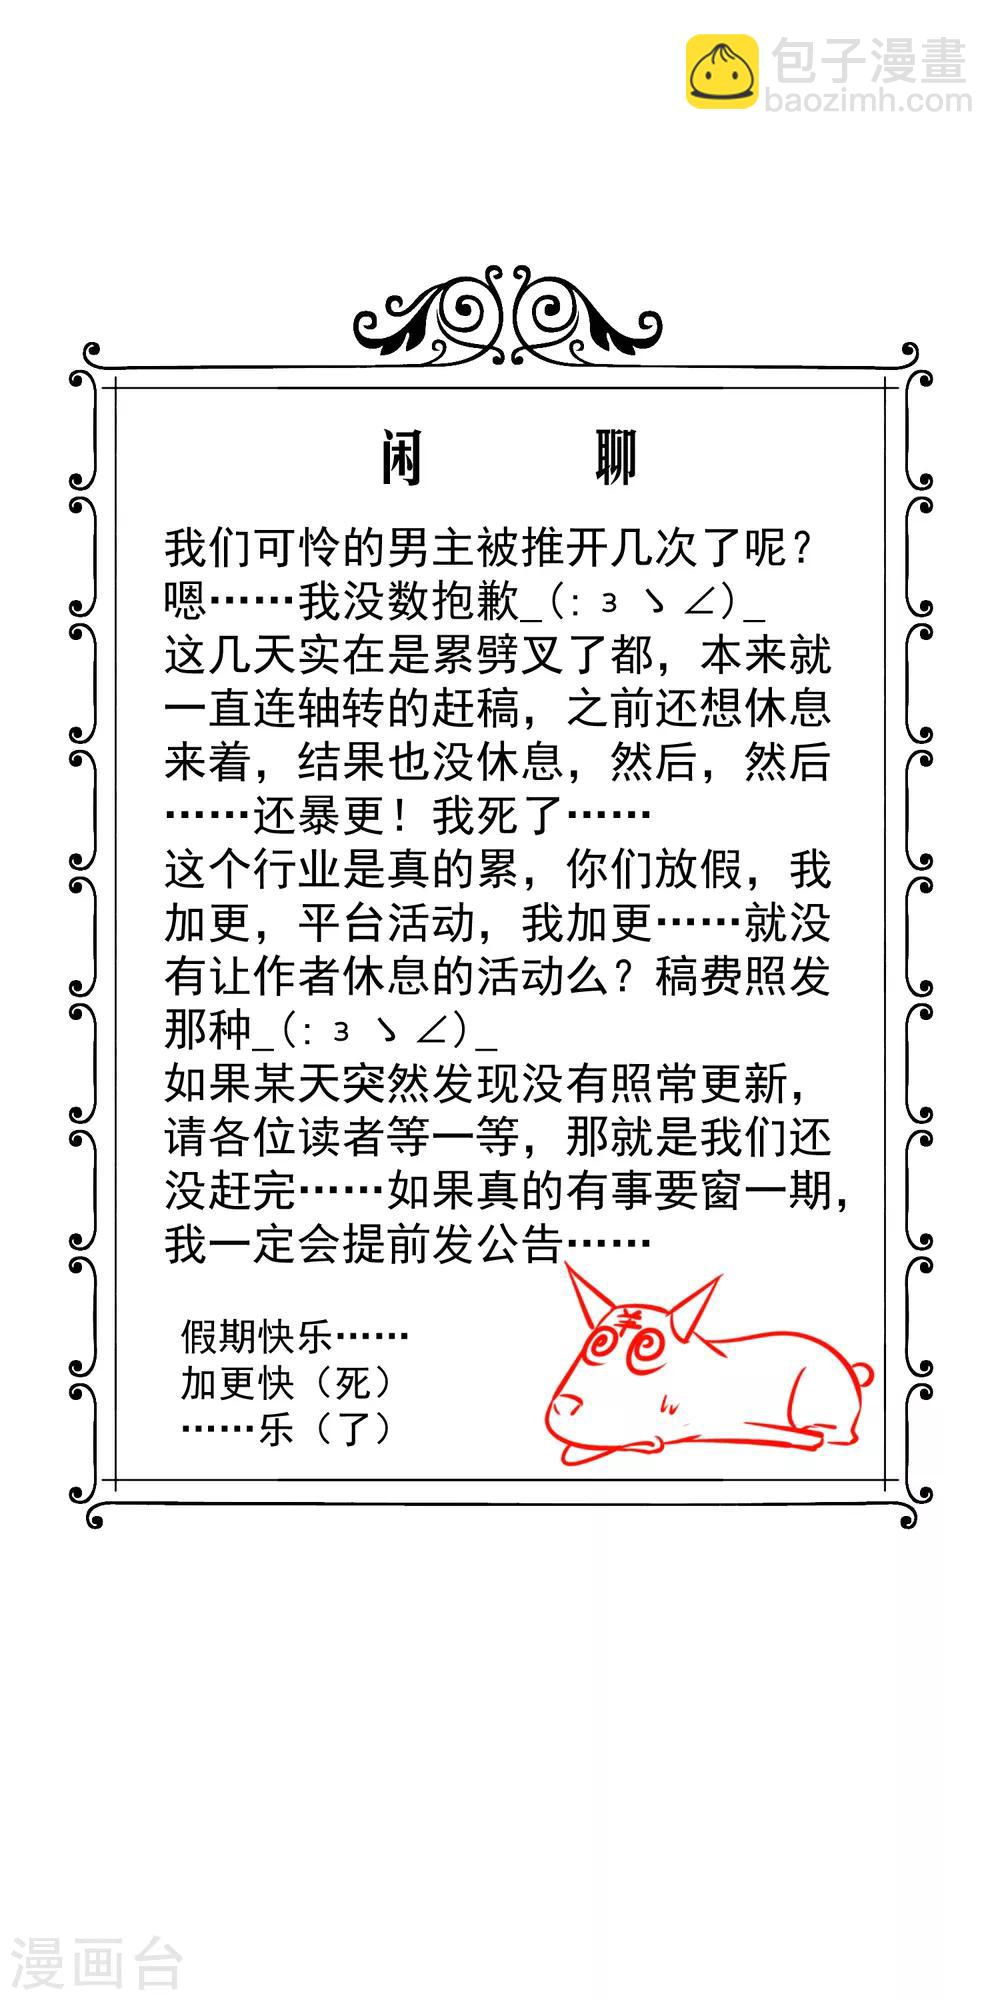 包子漫畫
baozimh.com
闲 聊
我们可怜的男主被推开几次了呢？
嗯……我没数抱歉_(:з ゝ∠)_
这几天实在是累劈叉了都，本来就
一直连轴转的赶稿，之前还想休息
来着，结果也没休息，然后，然后
……还暴更！我死了……
这个行业是真的累，你们放假，我
加更，平台活动，我加更……就没
有让作者休息的活动么？稿费照发
那种_(:з ゝ∠)_
如果某天突然发现没有照常更新，
请各位读者等一等，那就是我们还
没赶完……如果真的有事要窗一期，
我一定会提前发公告……
假期快乐……
加更快（死）
……乐（了）
漫画台